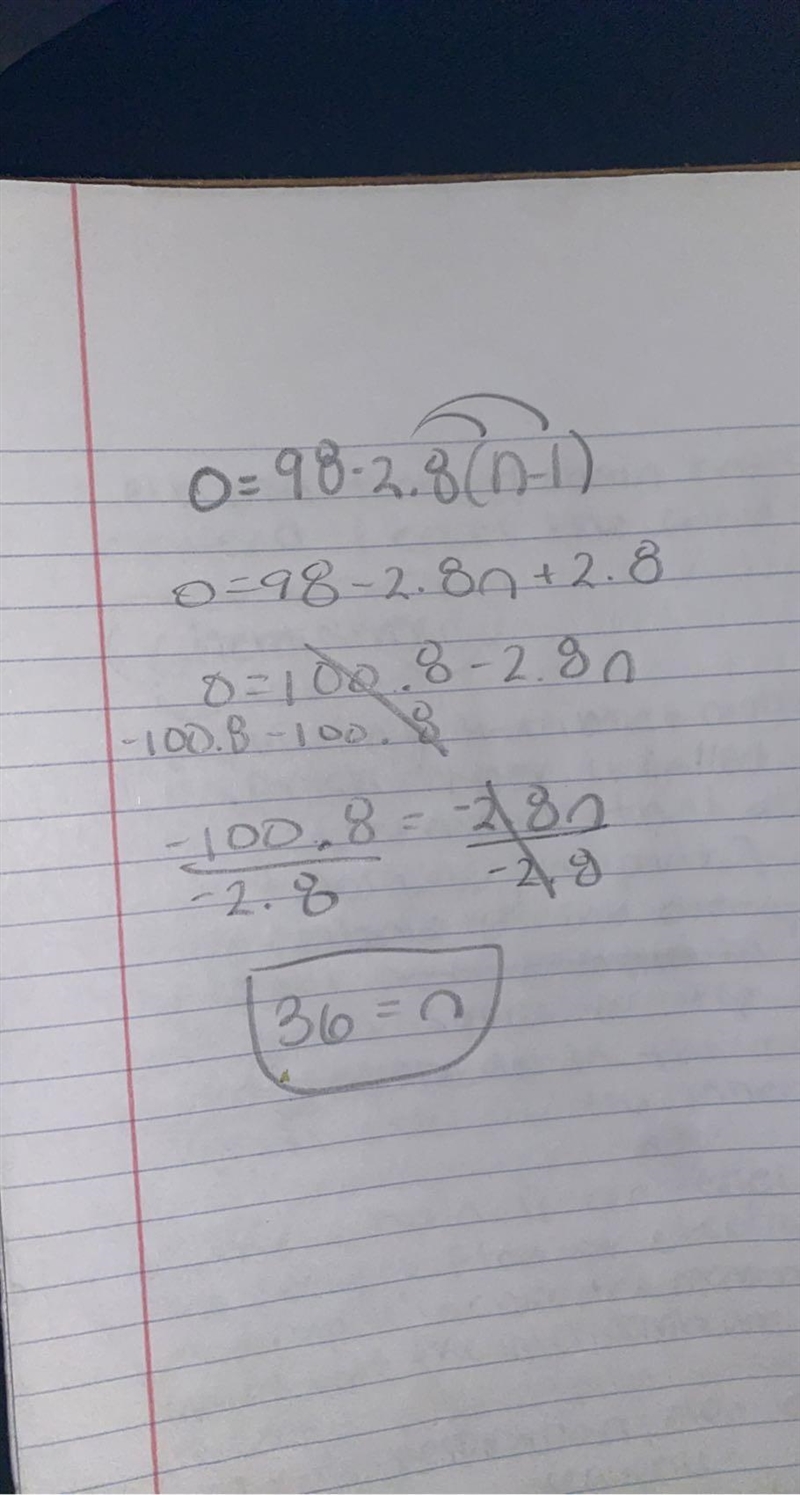 0=98-2.8(n-1)
0=98-2.8n+2.8
0=100.8-2.8n
-100.8 -100.8
-100.8 = -2.8n
-2.8 -2.8
36=n